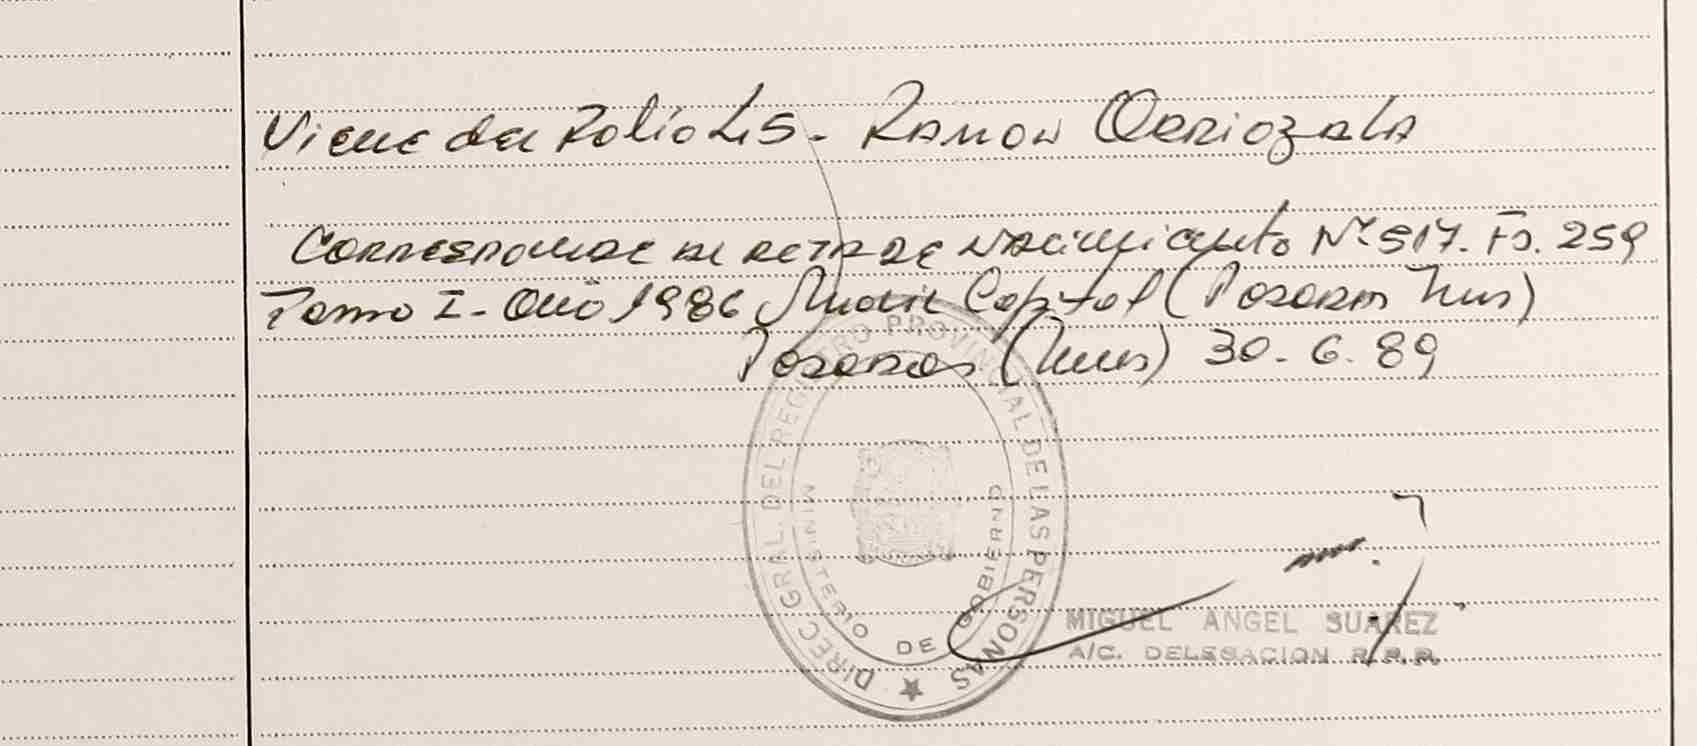 Viene del Folio 45. Ramon Oeriozala
Corresponde al acta de Nacimiento Nº 517. Fº. 259
Tomo I - Año 1986 Capital (Posadas Mnes)
Posadas (Mnes) 30. 6. 89
DIREC. GRAL. DEL REGISTRO PROVINCIAL DE LAS PERSONAS
MINISTERIO DE GOBIERNO
MIGUEL ANGEL SUAREZ
A/C. DELEGACION R.P.P.